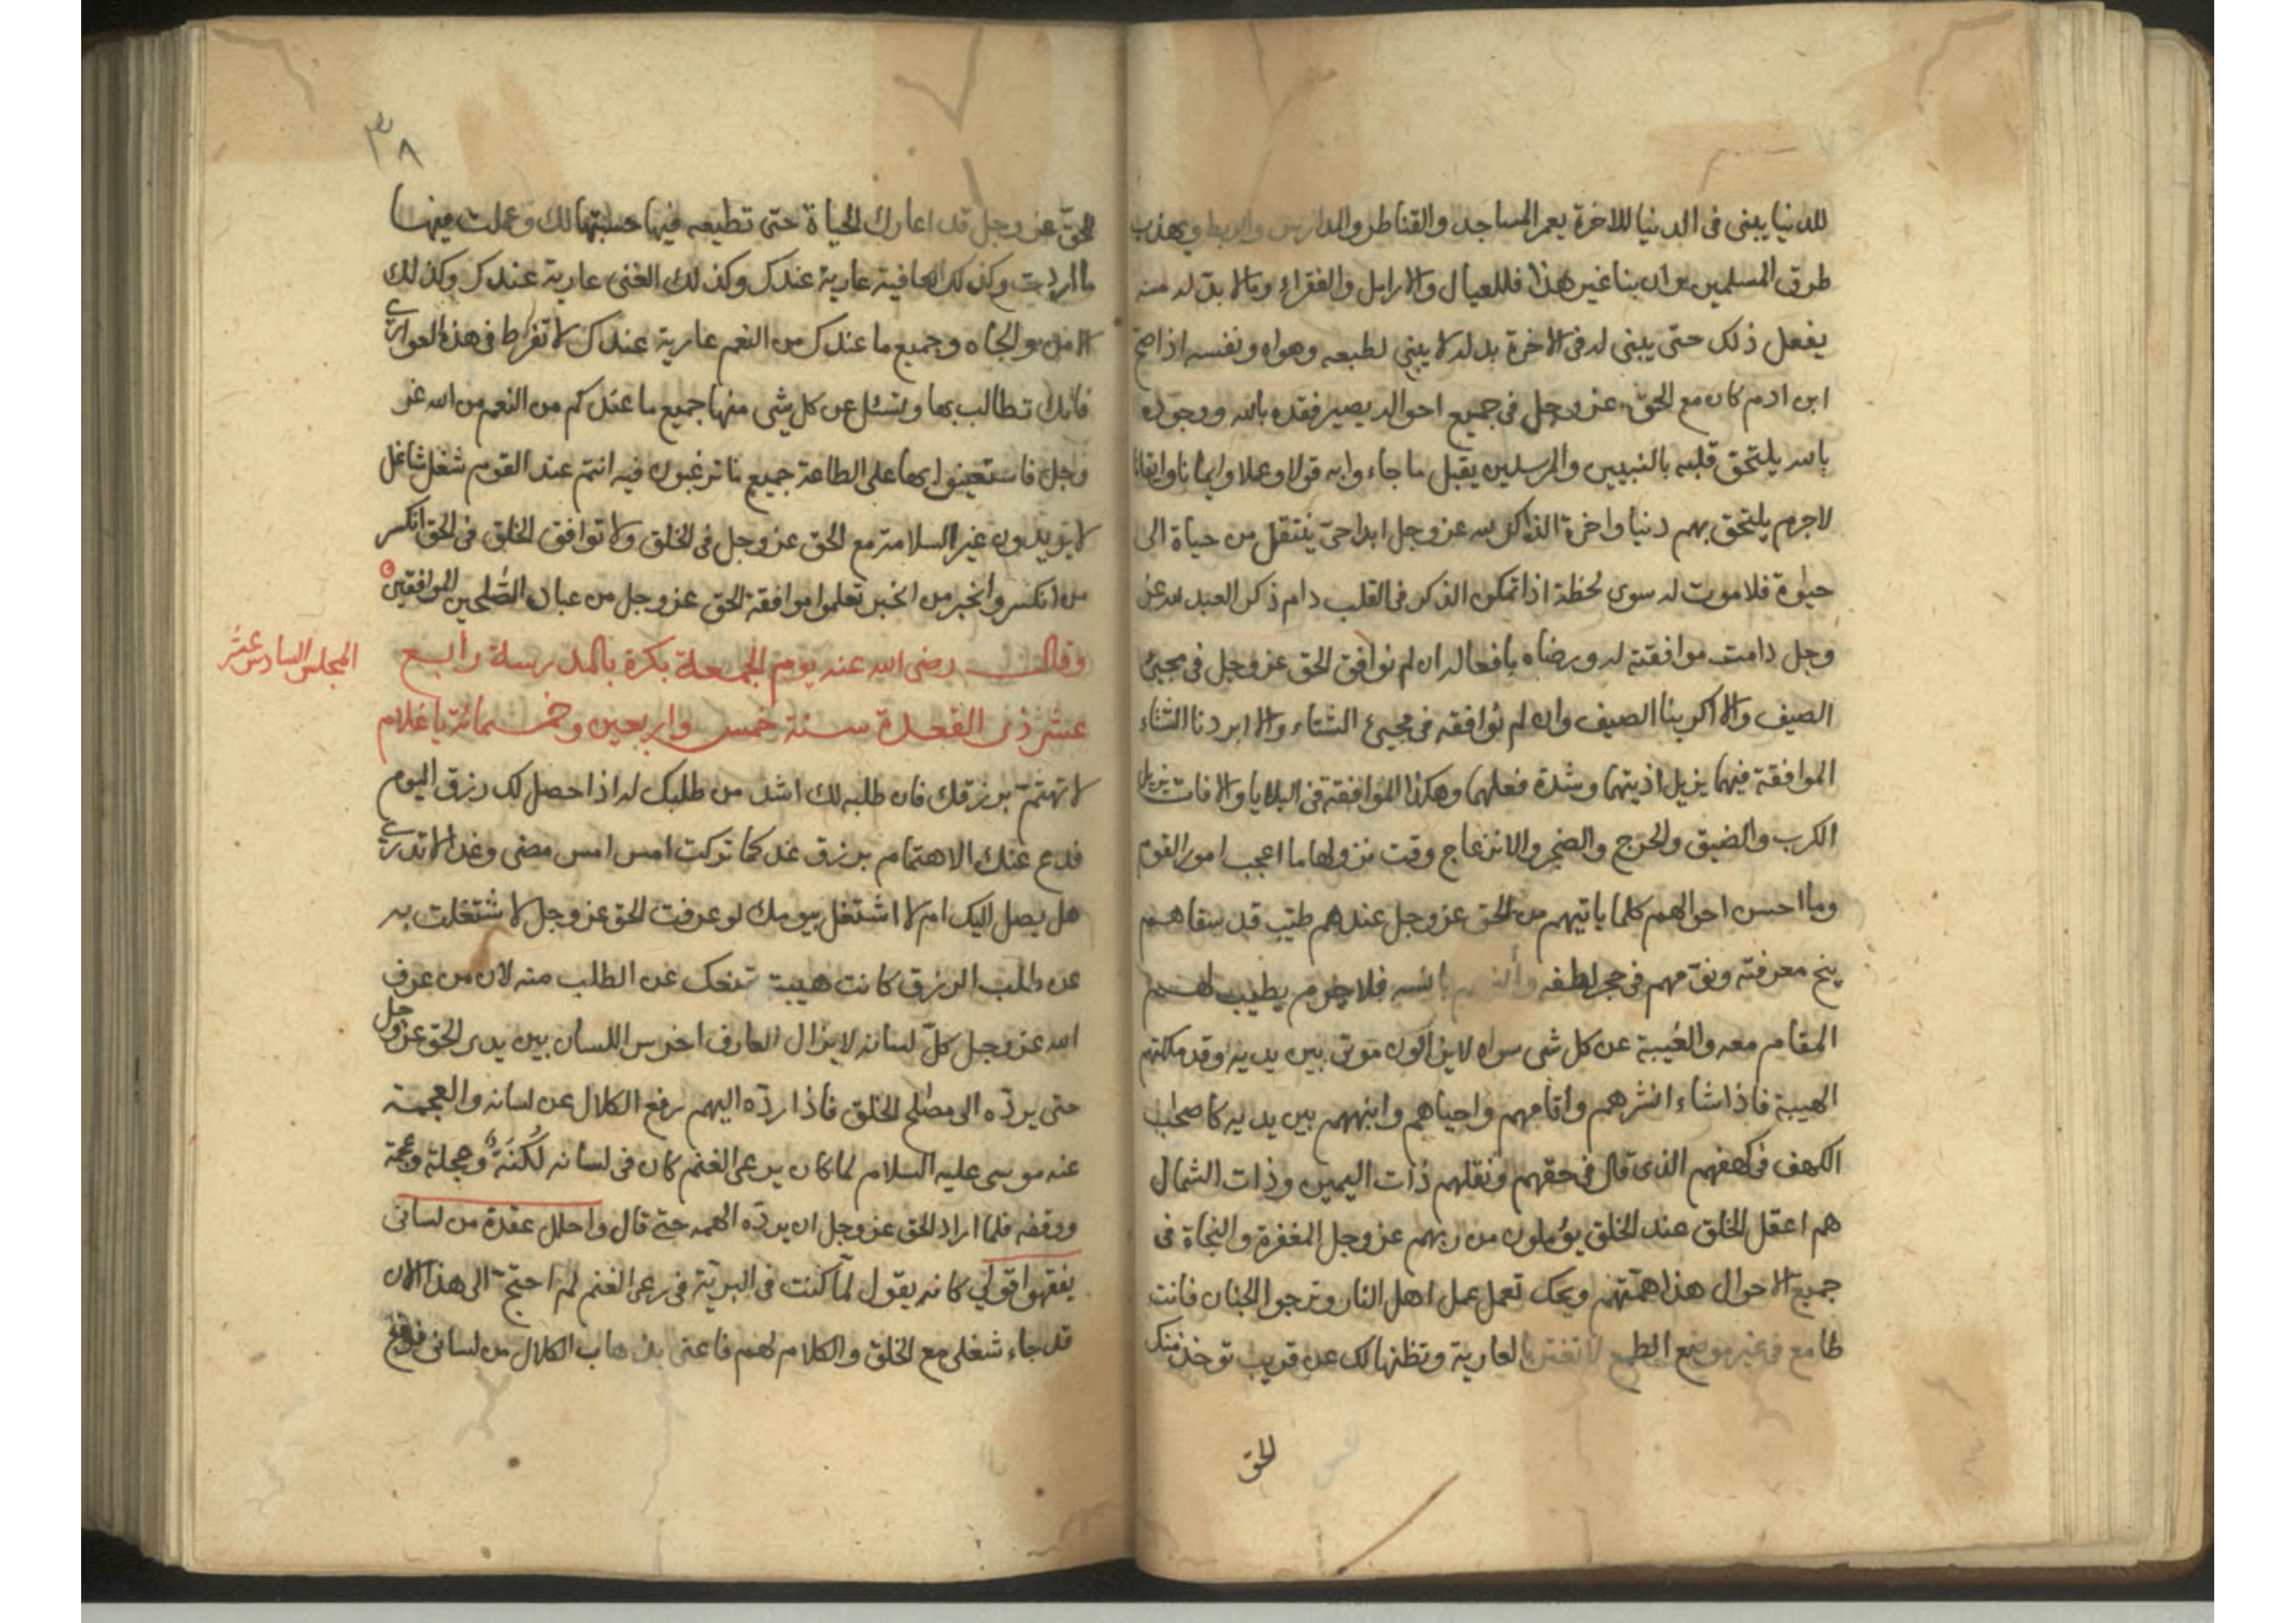 للدنيا يبنى فى الدنيا للاخرة يعمر المساجد والقناطر والمدارس والربط ويهذب
طرق المسلمين وان بنا غير هذا فللعيال والارامل والفقراء ومالا بد له منه
يفعل ذلك حتى يبنى له فى الاخرة بدله لا يبنى لطبعه وهواه ونفسه اذا صح
ابن ادم كان مع الحق عز وجل فى جميع احواله يصير فقده بالله ووجوده
بالله يلتحق قلبه بالنبيين والمرسلين يقبل ما جاءوا به قولا وعملا وايمانا وايقانا
لاجرم يلتحق بهم دنيا واخرة الذاكر لله عز وجل ابدا حى ينتقل من حياة الى
حيوة فلا موت له سوى لحظة اذا تمكن الذكر فى القلب دام ذكر العبد لله عز
وجل دامت موافقته له ورضاه بافعاله ان لم نوافق الحق عز وجل فى مجيئ
الصيف والا اكربنا الصيف وان لم نوافقه فى مجيئ الشتاء والا ابردنا الشتاء
الموافقة فيهما يزيل اذيتهما وشدة فعلهما وهكذا الموافقة فى البلايا والافات يزيل
الكرب والضيق والحرج والضجر والانزعاج وقت نزولها ما اعجب امور القوم
وما احسن احوالهم كلما ياتيهم من الحق عز وجل عندهم طيب قد سقاهم
بنج معرفته ونومهم فى حجر لطفه بانسه فلاجرم يطيب لهم
المقام معه والغيبة عن كل شى سواه لايزالون موتى بين يديه وقد ملكتهم
الهيبة فاذا شاء انشرهم واقامهم واحياهم وانبههم بين يديه كاصحاب
الكهف فى كهفهم الذى قال فى حقهم ونقلبهم ذات اليمين وذات الشمال
هم اعقل الخلق عند الخلق يؤملون من ربهم عز وجل المغفرة والنجاة فى
جميع الاحوال هذا همتهم ويحك تعمل عمل اهل النار وترجوا الجنان فانت
طامع فى غير موضع الطمع لا تغتر بالعارية وتظنها لك عن قريب توخذ منك
الحق
٣٨
الحق عز وجل قد اعارك الحياة حتى تطيعه فيها حسبتها لك وعملت فيها
ما اردت وكذلك العافية عارية عندك وكذلك الغنى عارية عندك وكذلك
الامن والجاه وجميع ما عندك من النعم عارية عندك لا تفرط فى هذه العوارى
فانك تطالب بها وتسئل عن كل شى منها جميع ما عندكم من النعم من الله عز
وجل فاستعينوا بها على الطاعة جميع ما ترغبون فيه انتم عند القوم شغل شاغل
لا يريدون غير السلامة مع الحق عز وجل فى الخلق ولا توافق الخلق فى الحق انكسر
من انكسر وانجبر من انجبر تعلموا موافقة الحق عز وجل من عباده الصلحين الموافقين
وقال رضى الله عنه يوم الجمعة بكرة بالمدرسة رابع
المجلس السادس عشر
عشر ذى القعدة سنة خمس واربعين وخمسمائة يا غلام
لا تهتم برزقك فان طلبه لك اشد من طلبك له اذا حصل لك رزق اليوم
فدع عنك الاهتمام برزق غد كما تركت امس امس مضى وغدا لا تدرى
هل يصل اليك ام لا اشتغل بيومك لو عرفت الحق عز وجل لاشتغلت به
عن طلب الرزق كانت هيبة تمنعك عن الطلب منه لان من عرف
الله عز وجل كل لسانه لايزال العارف اخرس اللسان بين يدى الحق عز وجل
حتى يرده الى مصلح الخلق فاذا رده اليهم رفع الكلال عن لسانه والعجمة
عنه موسى عليه السلام لما كان يرعى الغنم كان فى لسانه لُكْنَة وعجلة وعجمة
ووقفه فلما اراد الحق عز وجل ان يرده الهمه حتى قال واحلل عقدة من لسانى
يفقهوا قولى كانه يقول لما كنت فى البرية فى رعى الغنم لم احتج الى هذا الان
قد جاء شغلى مع الخلق والكلام لهم فاعنى بذهاب الكلال من لسانى فرفع